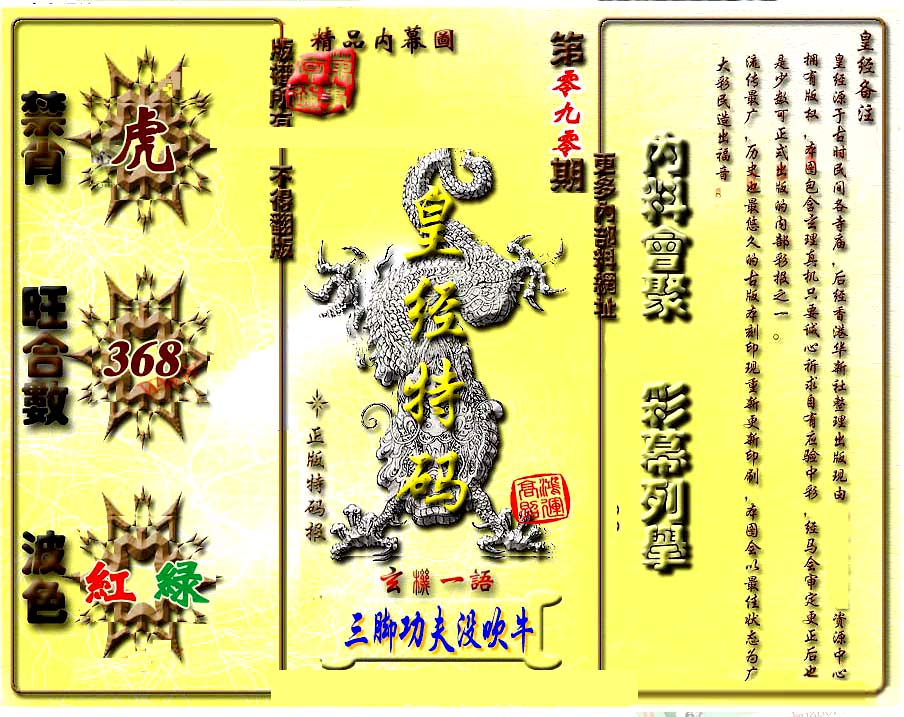 精品内幕圖
版權所有
不得翻版
第零九零期
更多內部料網址
禁肖
虎
旺合數
368
波色
紅 綠
皇经特码
正版特码报
鴻運高照
玄機一語
三脚功夫没吹牛
內料會聚
彩幕列舉
皇经备注
皇经源于古时民间各寺庙,后经香港华新社整理出版现由 资源中心
拥有版权,本图包含玄理真机只要诚心祈求自有应验中彩,经马会审定更正后也
是少数可正式出版的内部彩报之一。
流传最广,历史也最悠久的古版本刻印现重新更新印刷,本图会以最佳状态为广
大彩民造出福音